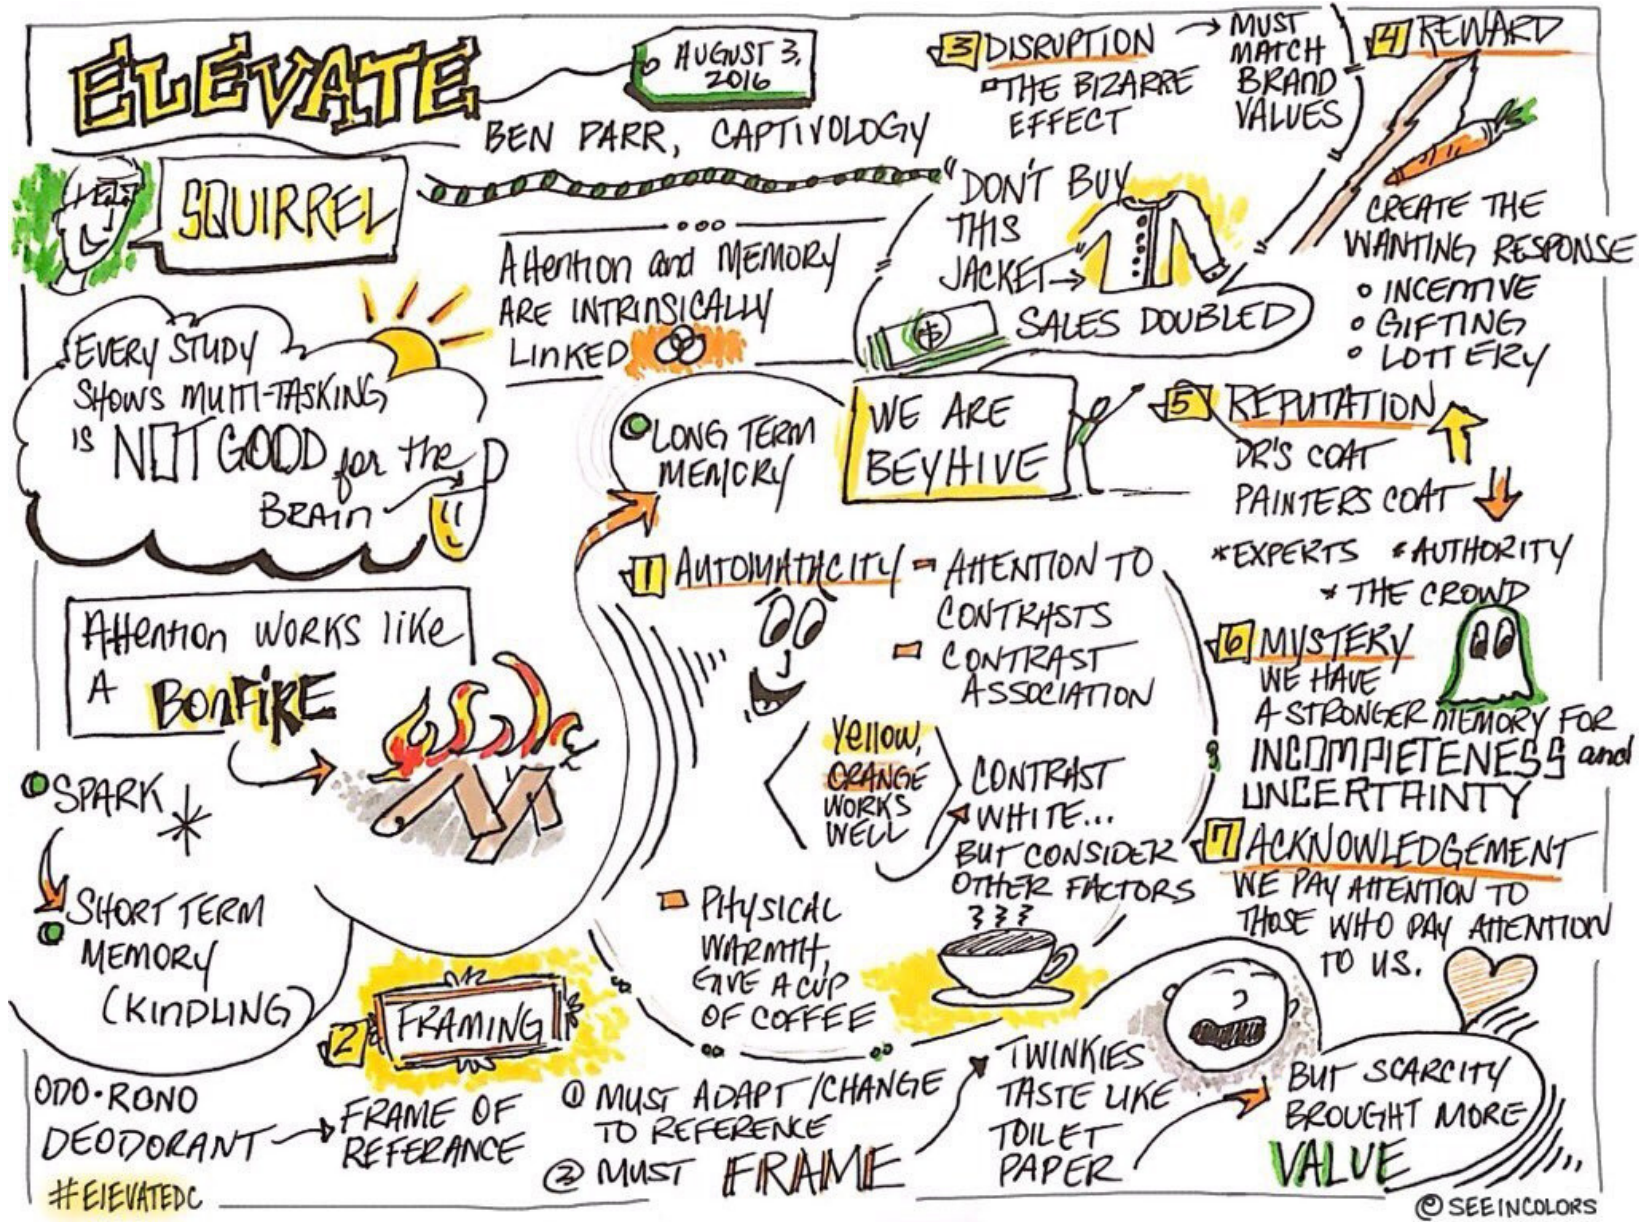 ELEVATE
AUGUST 3,
2016
BEN PARR, CAPTIVOLOGY
SQUIRREL
Attention and MEMORY
ARE INTRINSICALLY
LINKED
EVERY STUDY
SHOWS MULTI-TASKING
IS NOT GOOD for the
BRAIN
Attention WORKS like
A BONFIRE
SPARK
SHORT TERM
MEMORY
(KINDLING)
LONG TERM
MEMORY
WE ARE
BEYHIVE
1 AUTOMATACITY
ATTENTION TO
CONTRASTS
CONTRAST
ASSOCIATION
Yellow,
ORANGE
WORKS
WELL
CONTRAST
WHITE...
BUT CONSIDER
OTHER FACTORS
PHYSICAL
WARMTH,
GIVE A CUP
OF COFFEE
2 FRAMING
ODO·RONO
DEODORANT
FRAME OF
REFERANCE
① MUST ADAPT/CHANGE
TO REFERENCE
② MUST FRAME
TWINKIES
TASTE LIKE
TOILET
PAPER
BUT SCARCITY
BROUGHT MORE
VALUE
3 DISRUPTION
THE BIZARRE
EFFECT
MUST
MATCH
BRAND
VALUES
"DON'T BUY
THIS
JACKET"
$
SALES DOUBLED
4 REWARD
CREATE THE
WANTING RESPONSE
INCENTIVE
GIFTING
LOTTERY
5 REPUTATION
DR'S COAT
PAINTERS COAT
*EXPERTS *AUTHORITY
*THE CROWD
6 MYSTERY
WE HAVE
A STRONGER MEMORY FOR
INCOMPLETENESS and
UNCERTAINTY
7 ACKNOWLEDGEMENT
WE PAY ATTENTION TO
THOSE WHO PAY ATTENTION
TO US.
#ELEVATEDC
© SEEINCOLORS